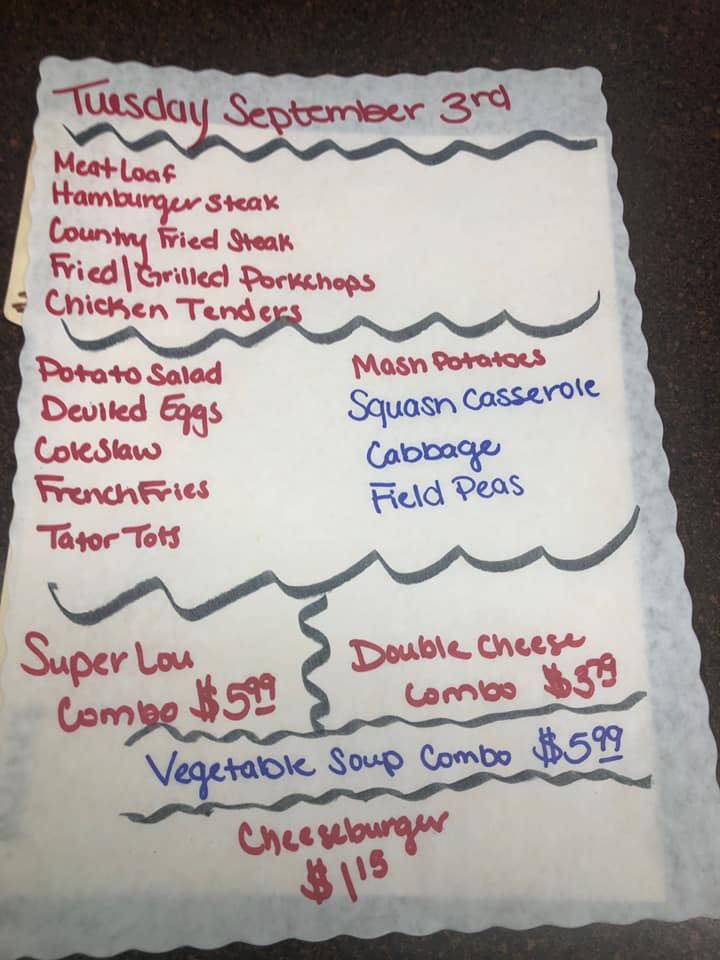 Tuesday September 3rd
Meat Loaf
Hamburger Steak
Country Fried Steak
Fried/Grilled Porkchops
Chicken Tenders
Potato Salad
Deviled Eggs
Coleslaw
French Fries
Tator Tots
Mash Potatoes
Squash Casserole
Cabbage
Field Peas
Super Lou
Combo $5.99
Double Cheese
Combo $3.79
Vegetable Soup Combo $5.99
Cheeseburger
$1.15